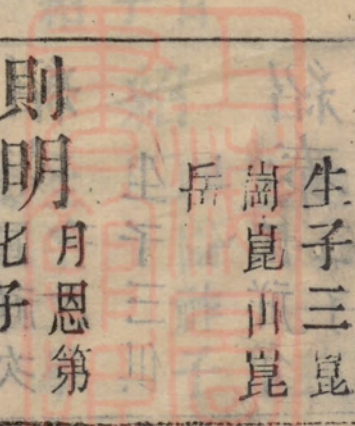 生子三崑
崗崑山崑
岳
則明
月恩第
七子